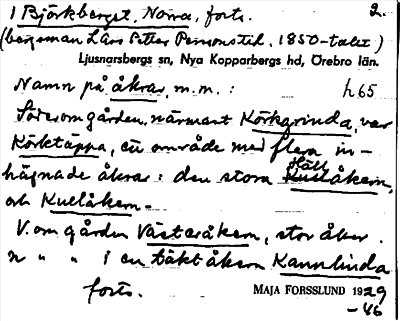 1 Björkberget, Norra, forts. 2.
(bergsman Lars Petter Persons tid, 1850-talet)
Ljusnarsbergs sn, Nya Kopparbergs hd, Örebro län.
Namn på åkrar, m.m.: h65
Söder om gården, närmast Körkgrinda, var
Körktäppa, ett område med flera in-
Häll
hägnade åkrar: den stora Kullåkern,
och Kullåkern.
V. om gården Västeråkern, stor åker.
n " " i en täkt åkern Kannlinda
forts. MAJA FORSSLUND 1929
-46